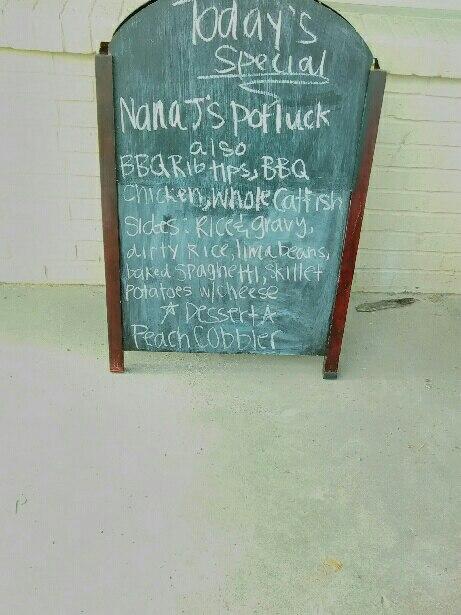 Today's
Special
Nana J's Potluck
also
BBQ Rib tips, BBQ
Chicken, Whole Catfish
Sides: Rice & gravy,
dirty Rice, lima beans,
baked spaghetti, skillet
Potatoes w/cheese
☆ Dessert ☆
Peach Cobbler